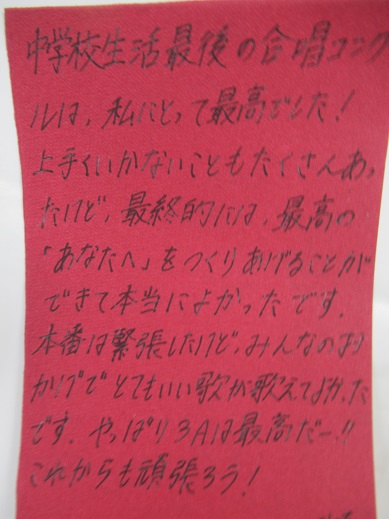 中学校生活最後の合唱コンク
ルは、私にとって最高でした!
上手くいかないこともたくさんあっ
たけど、最終的には、最高の
「あなたへ」をつくりあげることが
できて本当によかったです。
本番は緊張したけど、みんなのお
かげでとてもいい歌が歌えてよかった
です。やっぱり3Aは最高だー!!
これからも頑張ろう!